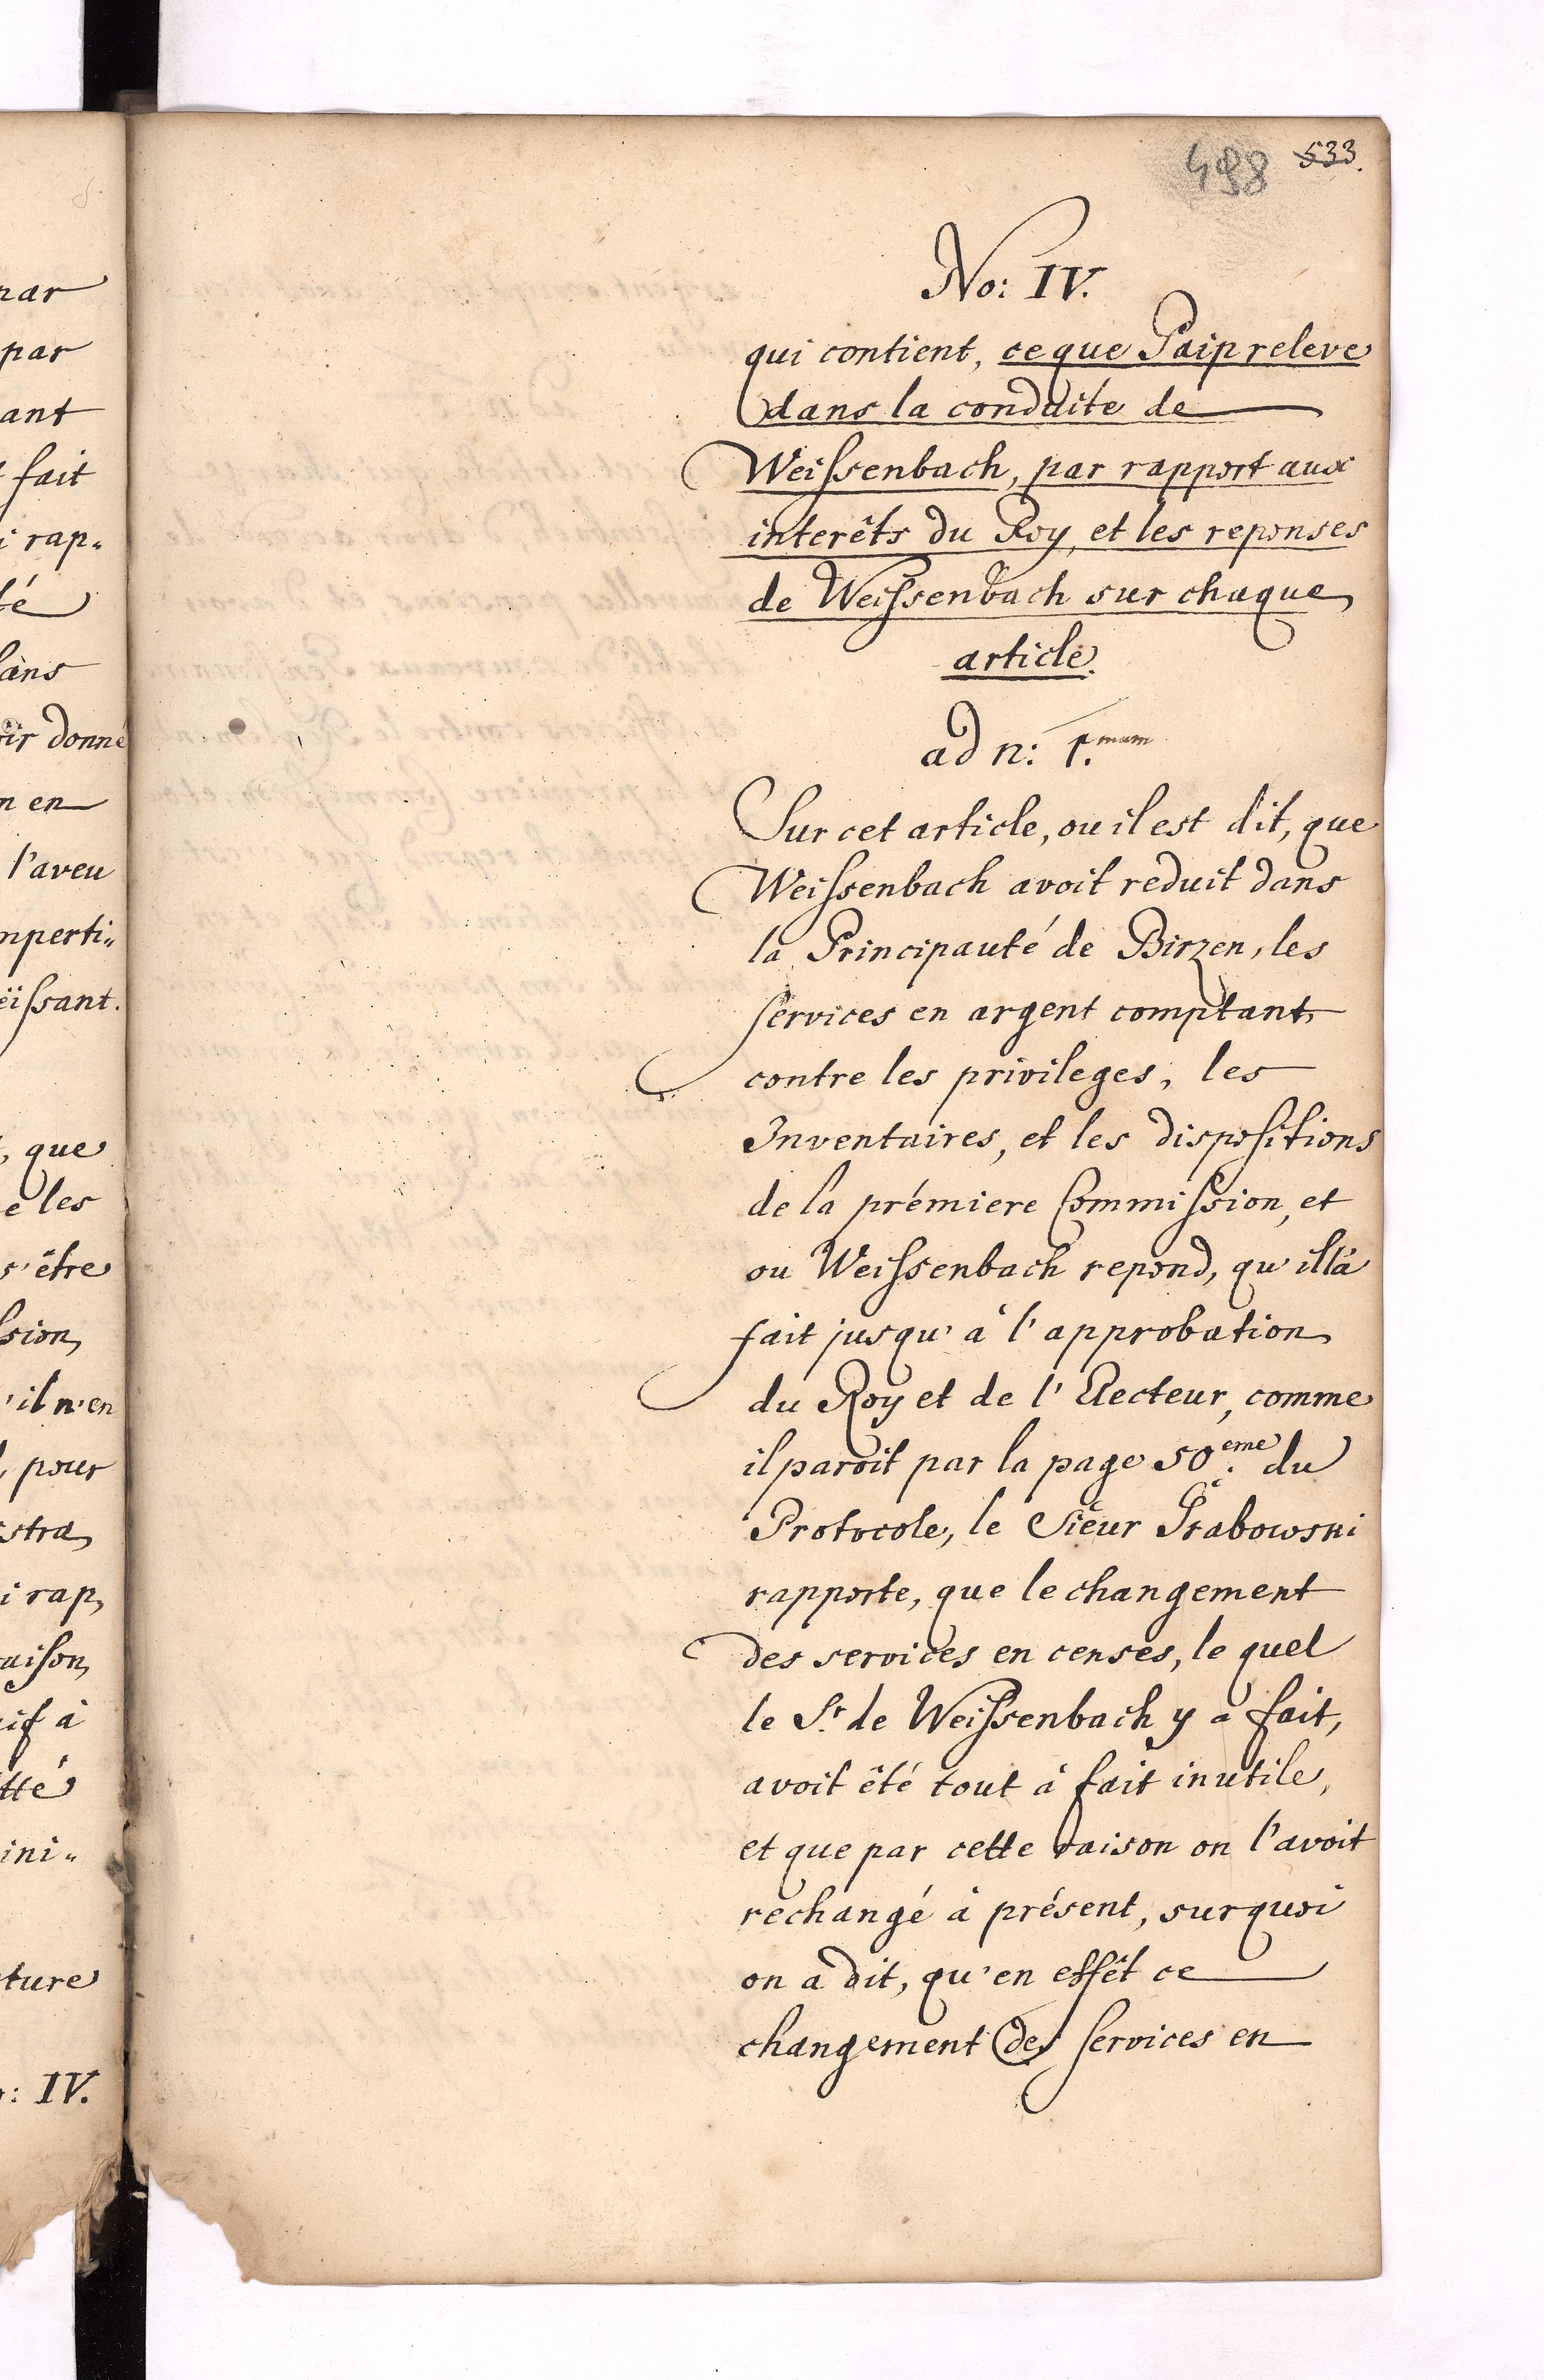 nar
par
ant
fait
i rap„
té
lans
oir donné
n en
l'aveu
mperti„
eïssant.
, que
e les
s'être
ssion
'il n'en
, pour
stra
i rap,
aison
if à
tté
ini„
ture
o: IV.
498 533.
No: IV.
qui contient, ce que Paip releve
dans la conduite de
Weissenbach, par rapport aux
interêts du Roy, et les reponses
de Weissenbach sur chaque
article.
ad n: 1.mum
Sur cet article, ou il est dit, que
Weissenbach avoit reduit dans
la Principauté de Birzen, les
services en argent comptant
contre les privileges, les
Inventaires, et les dispositions
de la prémiere Commission, et
ou Weissenbach repond, qu'il l'a
fait jusqu'à l'approbation
du Roy et de l'Electeur, comme
il paroit par la page 50.eme du
Protocole, le Sieur Grabowski
rapporte, que le changement
des services en censes, le quel
le Sr. de Weissenbach y a fait,
avoit êté tout à fait inutile,
et que par cette raison on l'avoit
rechangé à présent, surquoi
on a dit, qu'en effêt ce
changement des services en